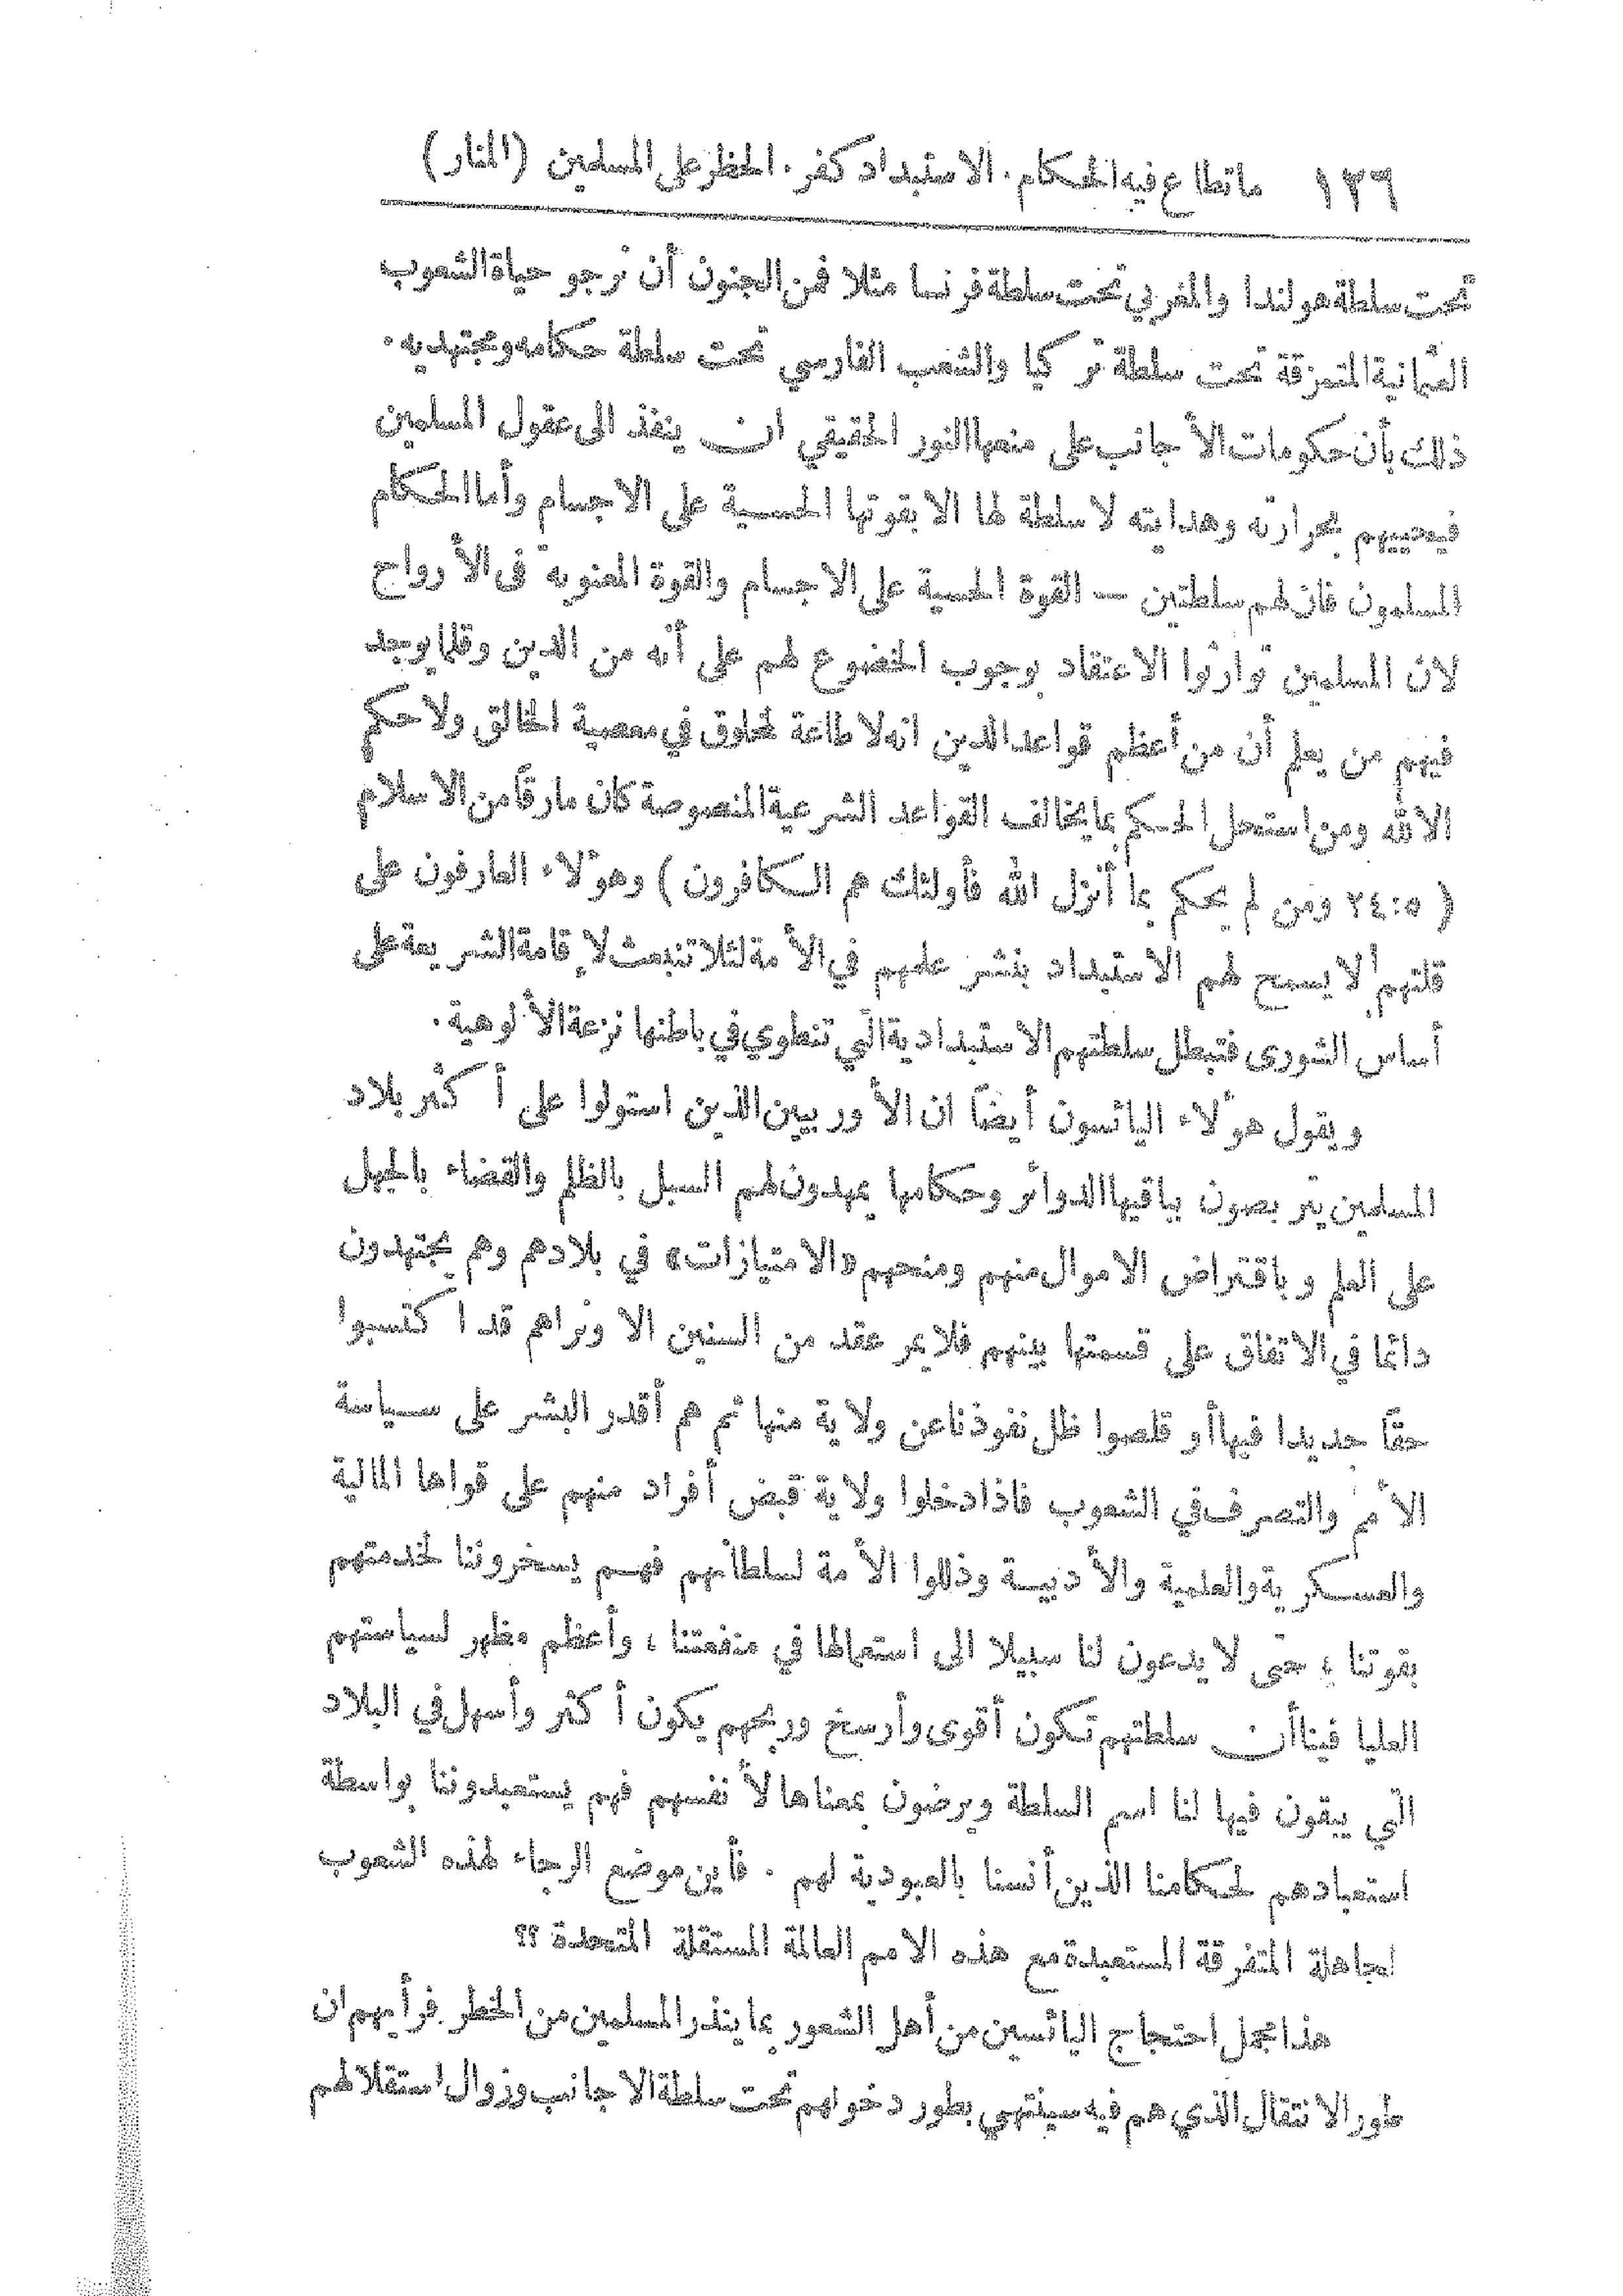 ١٣٦ ما تطاع فيه الحكام. الاستبداد كفر. الخطر على المسلمين (المنار)
تحت سلطة هولندا والمغربي تحت سلطة فرنسا مثلا فمن الجنون أن نرجو حياة الشعوب
العثمانية المتمزقة تحت سلطة تركيا والشعب الفارسي تحت سلطة حكامه ومجتهديه.
ذلك بأن حكومات الأجانب على منعها النور الحقيقي ان ينفذ الى عقول المسلمين
فيحييهم بحرارته وهدايته لا سلطة لها الا بقوتها الحسية على الاجسام وأما الحكام
المسلمون فان لهم سلطتين — القوة الحسية على الاجسام والقوة المعنوية في الأرواح
لان المسلمين توارثوا الاعتقاد بوجوب الخضوع لهم على أنه من الدين وقلما يوجد
فيهم من يعلم أن من أعظم قواعد الدين انه لا طاعة لمخلوق في معصية الخالق ولا حكم
الا لله ومن استحل الحكم بما يخالف القواعد الشرعية المنصوصة كان مارقًا من الاسلام
(٢٤:٥ ومن لم يحكم بما أنزل الله فأولئك هم الكافرون) وهؤلاء العارفون على
قلتهم لا يسمح لهم الاستبداد بنشر علمهم في الأمة لئلا تنبعث لإقامة الشريعة على
أساس الشورى فتبطل سلطتهم الاستبدادية التي تنطوي في باطنها نزعة الألوهية.
ويقول هؤلاء اليائسون أيضًا ان الأوربيين الذين استولوا على أكثر بلاد
المسلمين يتربصون بباقيها الدوائر وحكامها يمهدون لهم السبل بالظلم والقضاء بالجهل
على العلم وباقتراض الاموال منهم ومنحهم «الامتيازات» في بلادهم وهم يجتهدون
دائمًا في الاتفاق على قسمتها بينهم فلا يمر عقد من السنين الا ونراهم قد اكتسبوا
حقًا جديدا فيها أو قلصوا ظل نفوذنا عن ولاية منها ثم هم أقدر البشر على سياسة
الأمم والتصرف في الشعوب فاذا دخلوا ولاية قبض أفراد منهم على قواها المالية
والعسكرية والعلمية والأدبية وذللوا الأمة لسلطانهم فهم يسخروننا لخدمتهم
بقوتنا، حتى لا يدعون لنا سبيلا الى استعمالها في منفعتنا، وأعظم مظهر لسياستهم
العليا فينا أن سلطتهم تكون أقوى وأرسخ وربحهم يكون أكثر وأسهل في البلاد
التي يبقون فيها لنا اسم السلطة ويرضون بمعناها لأنفسهم فهم يستعبدوننا بواسطة
استعبادهم لحكامنا الذين أنسنا بالعبودية لهم. فأين موضع الرجاء لهذه الشعوب
الجاهلة المتفرقة المستعبدة مع هذه الامم العالمة المستقلة المتحدة؟؟
هذا مجمل احتجاج اليائسين من أهل الشعور بما ينذر المسلمين من الخطر فرأيهم ان
طور الانتقال الذي هم فيه سينتهي بطور دخولهم تحت سلطة الاجانب وزوال استقلالهم